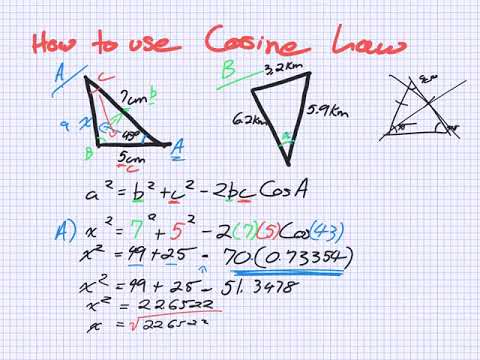 How to use Cosine Law
A
C
b
7cm
a
x
43°
A
B
5cm
c
B
3,2Km
6.2Km
5.9Km
x
a² = b² + c² - 2bc CosA
A) x² = 7² + 5² - 2(7)(5)Cos(43)
x² = 49 + 25 - 70.(0.73354)
x² = 49 + 25 - 51.3478
x² = 22.6522
x = √22.6522